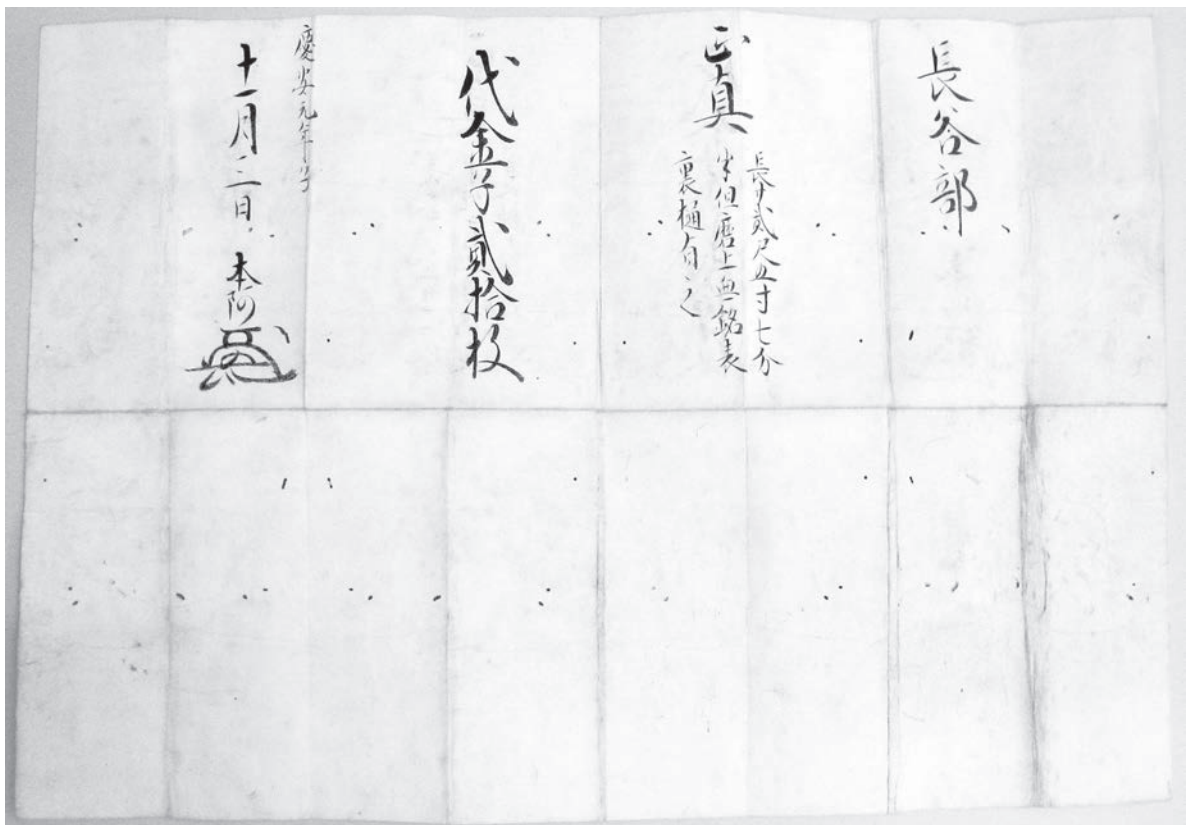 長谷部
正真
長サ貳尺五寸七分
半但磨上無銘表
裏樋有之
代金子貳拾枚
慶安元年子
十一月三日 本阿